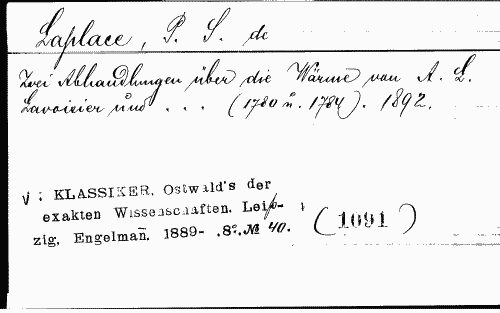 Laplace, P. S. de
Zwei Abhandlungen über die Wärme von A. L.
Lavoisier und . . . (1780 u. 1784). 1892.
v: KLASSIKER, Ostwald's der
exakten Wissenschaften. Leip-
zig, Engelmañ. 1889- .8º. № 40. (1091)